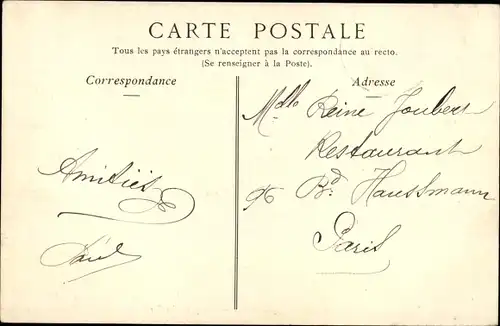 CARTE POSTALE
Tous les pays étrangers n'acceptent pas la correspondance au recto.
(Se renseigner à la Poste).
Correspondance
Amitiés
Paul
Adresse
Mdlle Reine Joubert
Restaurant
96 Bd. Haussmann
Paris